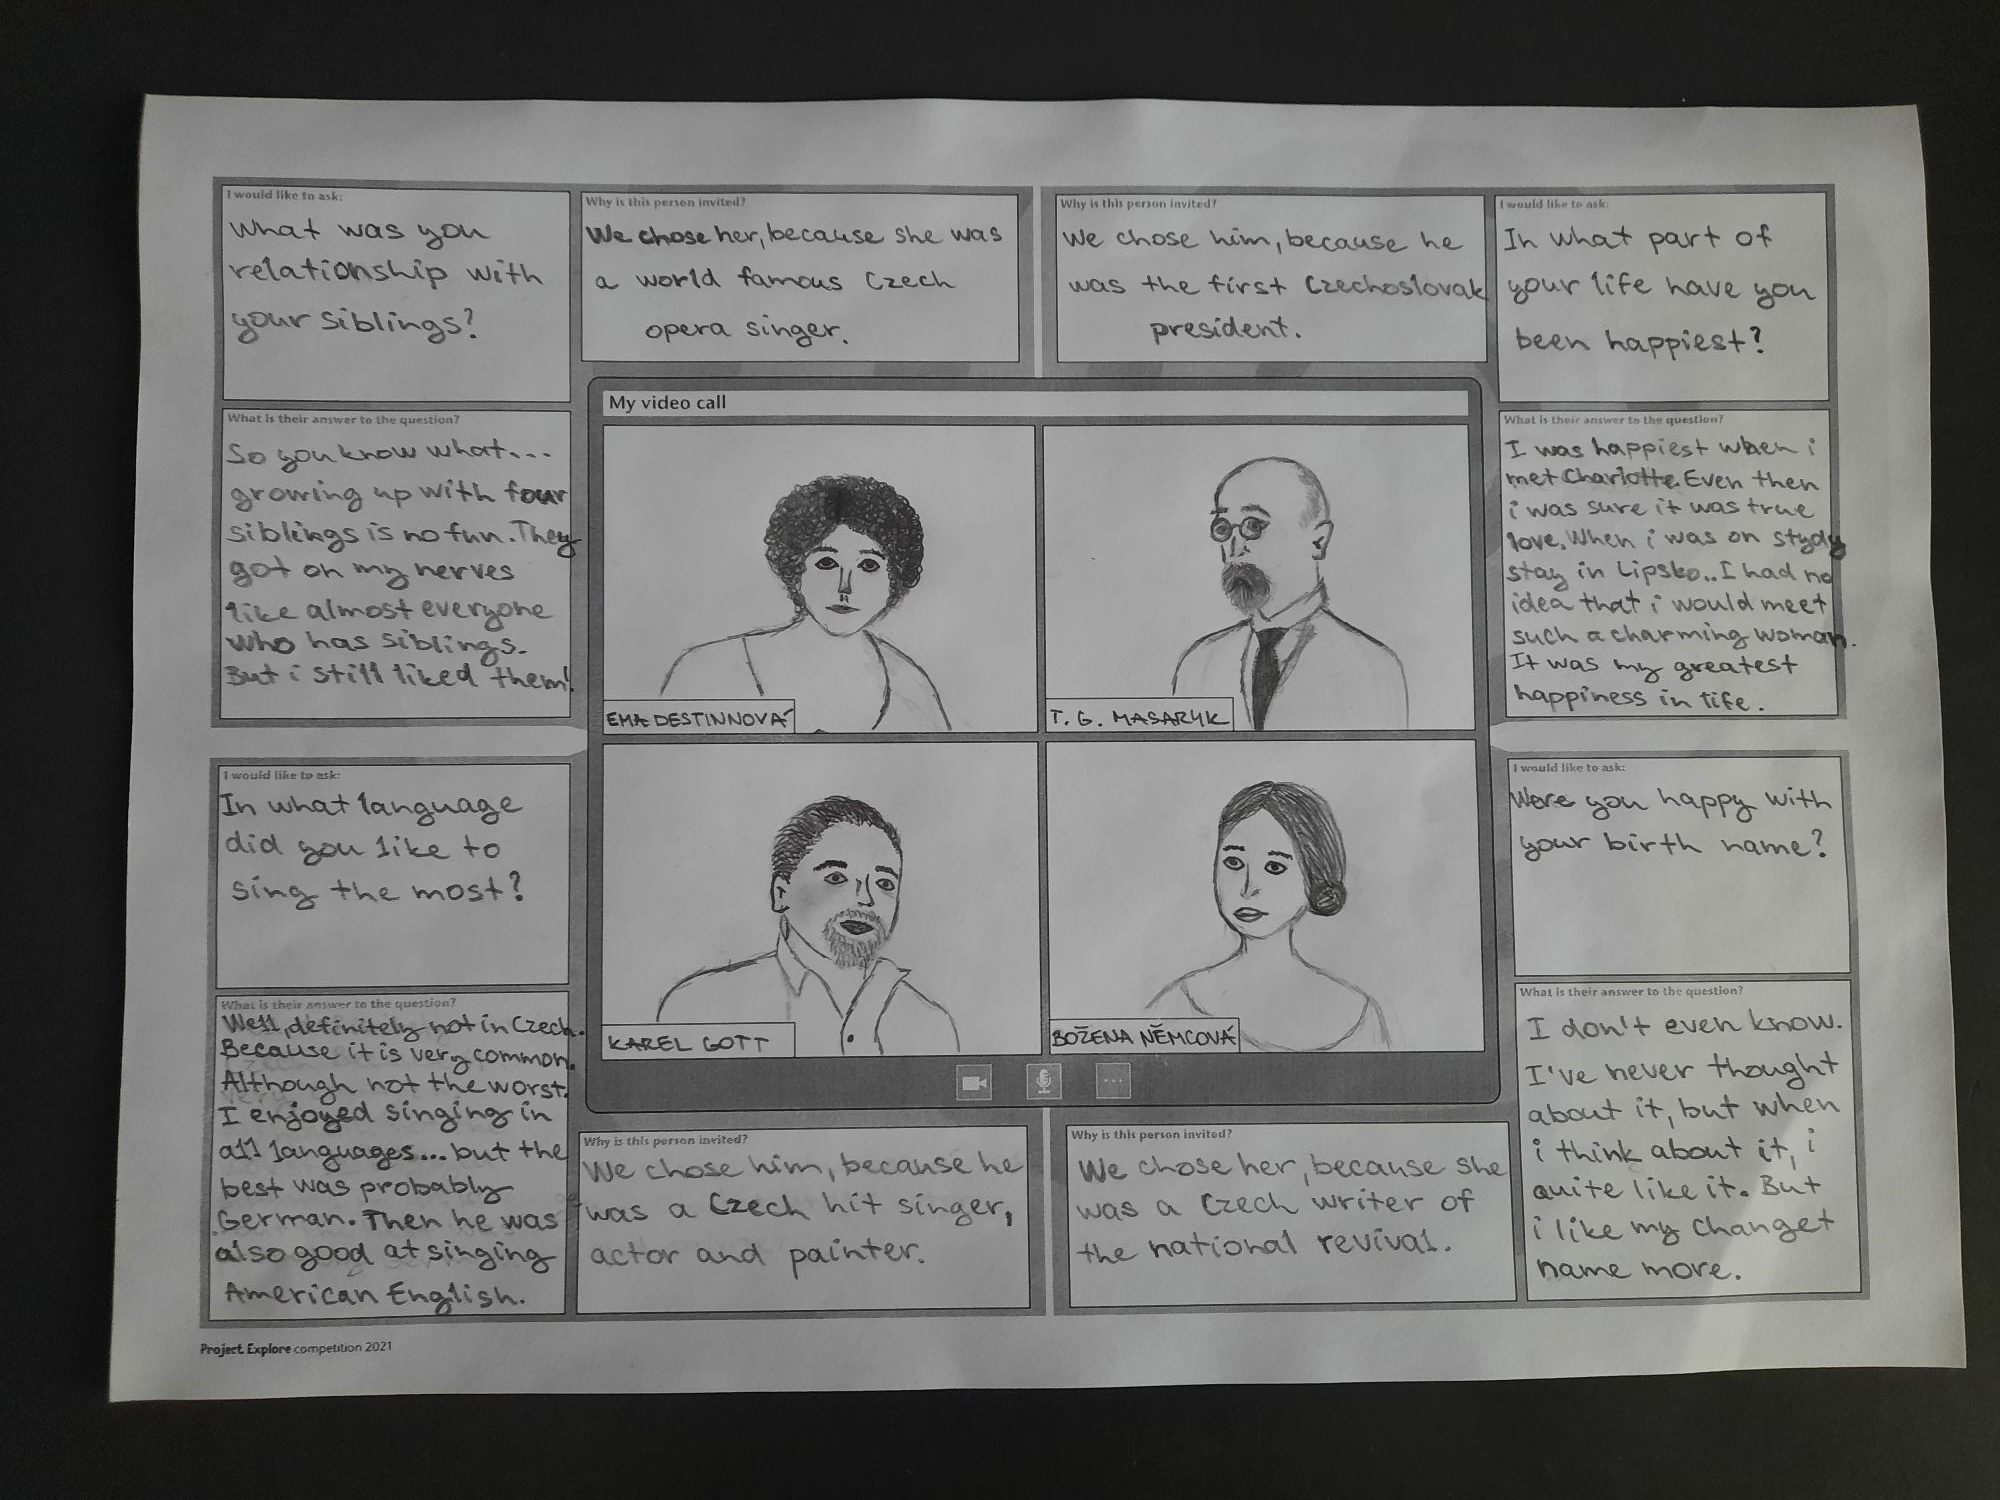 I would like to ask:
What was you
relationship with
your siblings?
What is their answer to the question?
So you know what...
growing up with four
siblings is no fun. They
got on my nerves
like almost everyone
who has siblings.
But i still liked them!
Why is this person invited?
We chose her, because she was
a world famous Czech
opera singer.
Why is this person invited?
We chose him, because he
was the first Czechoslovak
president.
I would like to ask:
In what part of
your life have you
been happiest?
What is their answer to the question?
I was happiest when i
met Charlotte. Even then
i was sure it was true
love. When i was on study
stay in Lipsko.. I had no
idea that i would meet
such a charming woman.
It was my greatest
happiness in life.
My video call
EMA DESTINNOVÁ
T. G. MASARYK
KAREL GOTT
BOŽENA NĚMCOVÁ
I would like to ask:
In what language
did you like to
sing the most?
What is their answer to the question?
Well, definitely not in Czech.
Because it is very common.
Although not the worst.
I enjoyed singing in
all languages... but the
best was probably
German. Then he was
also good at singing
American English.
Why is this person invited?
We chose him, because he
was a Czech hit singer,
actor and painter.
Why is this person invited?
We chose her, because she
was a Czech writer of
the national revival.
I would like to ask:
Were you happy with
your birth name?
What is their answer to the question?
I don't even know.
I've never thought
about it, but when
i think about it, i
quite like it. But
i like my changet
name more.
Project Explore competition 2021